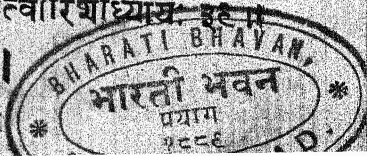 त्वारिंशोध्यायः ३९ ॥
BHARATI BHAVAN,
भारती भवन
प्रयाग
१८८९